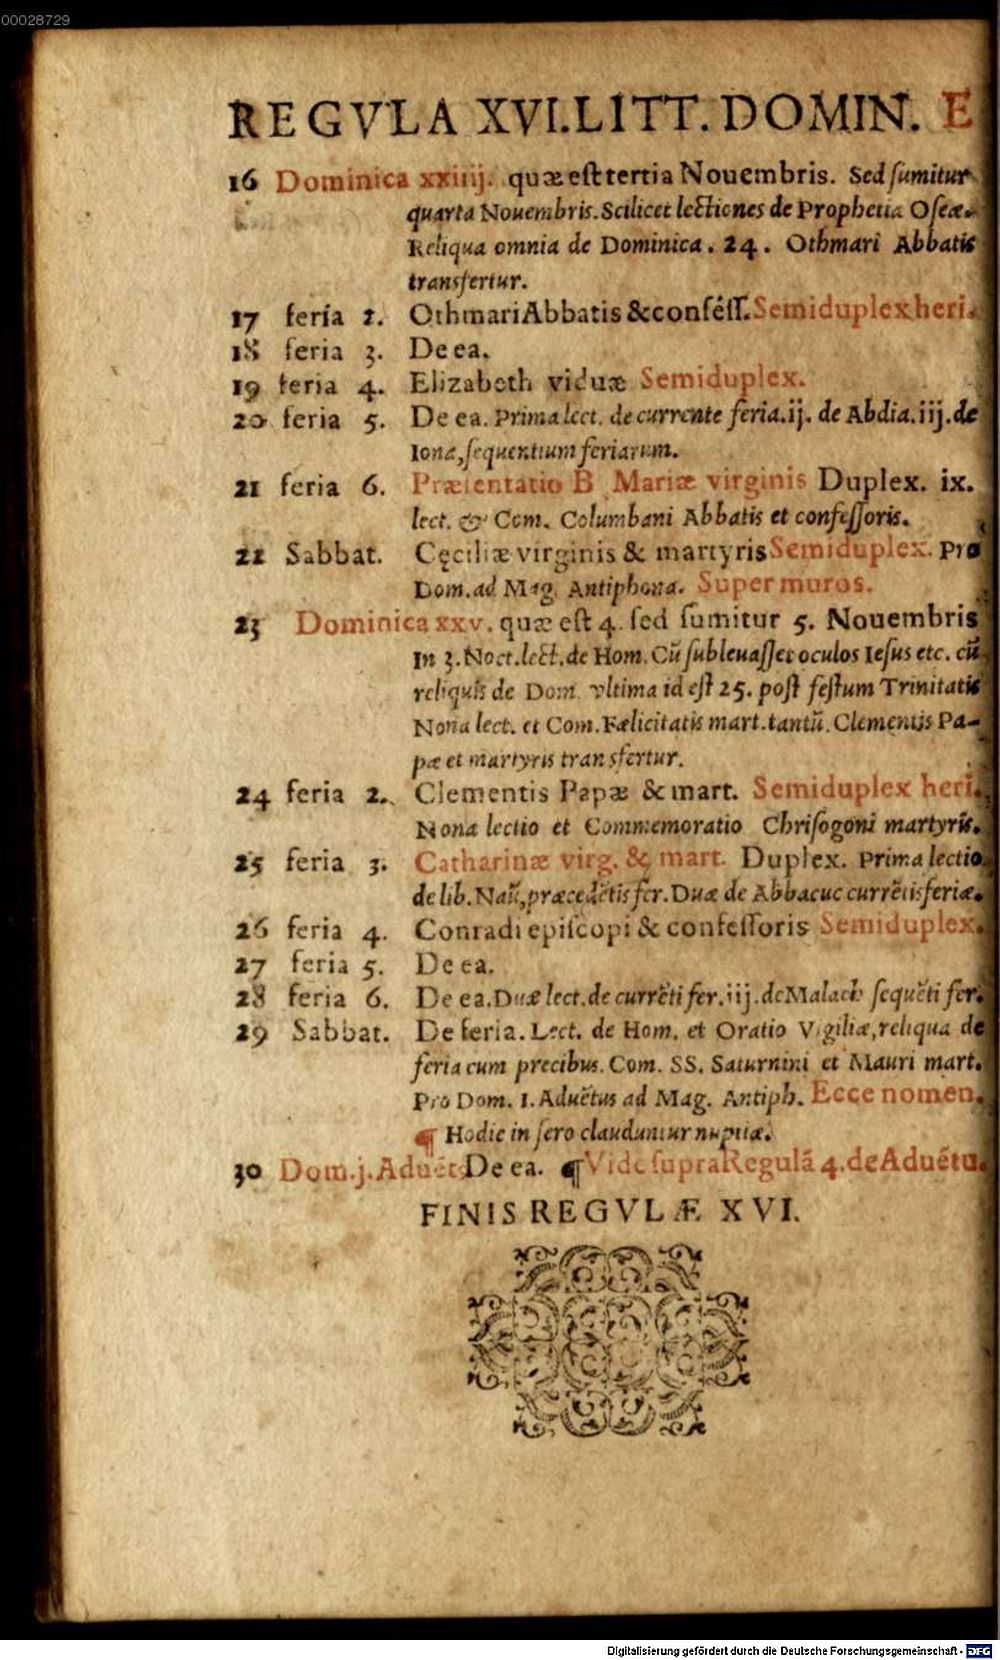 00028729
REGVLA XVI.LITT.DOMIN. E
16 Dominica xxiiij. quæ eſt tertia Nouembris. Sed ſumitur
quarta Nouembris. Scilicet lectiones de Prophetia Oſeæ.
Reliqua omnia de Dominica. 24. Othmari Abbatis
transfertur.
17 feria 2. Othmari Abbatis & confeſſ. Semiduplex heri.
18 feria 3. De ea.
19 feria 4. Elizabeth viduæ Semiduplex.
20 feria 5. De ea. Prima lect. de currente feria. ij. de Abdia. iij. de
Iona, ſequentium feriarum.
21 feria 6. Præſentatio B. Mariæ virginis Duplex. ix.
lect. & Com. Columbani Abbatis et confeſſoris.
22 Sabbat. Cęciliæ virginis & martyris Semiduplex. Pro
Dom. ad Mag. Antiphona. Super muros.
23 Dominica xxv. quæ eſt 4. ſed ſumitur 5. Nouembris
In 3. Noct. lect. de Hom. Cũ ſubleuaſſet oculos Ieſus etc. cũ
reliquis de Dom. vltima id eſt 25. poſt feſtum Trinitatis
Nona lect. et Com. Fælicitatis mart. tantũ. Clementis Pa-
pæ et martyris transfertur.
24 feria 2. Clementis Papæ & mart. Semiduplex heri.
Nona lectio et Commemoratio Chriſogoni martyris.
25 feria 3. Catharinæ virg. & mart. Duplex. Prima lectio
de lib. Naũ, præcedẽtis fer. Duæ de Abbacuc currẽtis feriæ.
26 feria 4. Conradi epiſcopi & confeſſoris Semiduplex.
27 feria 5. De ea.
28 feria 6. De ea. Duæ lect. de currẽti fer. iij. de Malach ſequẽti fer.
29 Sabbat. De feria. Lect. de Hom. et Oratio Vigiliæ, reliqua de
feria cum precibus. Com. SS. Saturnini et Mauri mart.
Pro Dom. 1. Aduẽtus ad Mag. Antiph. Ecce nomen.
¶ Hodie in ſero clauduntur nuptiæ.
30 Dom. j. Aduẽtꝰ De ea. ¶ Vide ſupra Regulã 4. de Aduẽtu.
FINIS REGVLÆ XVI.
Digitalisierung gefördert durch die Deutsche Forschungsgemeinschaft - DFG